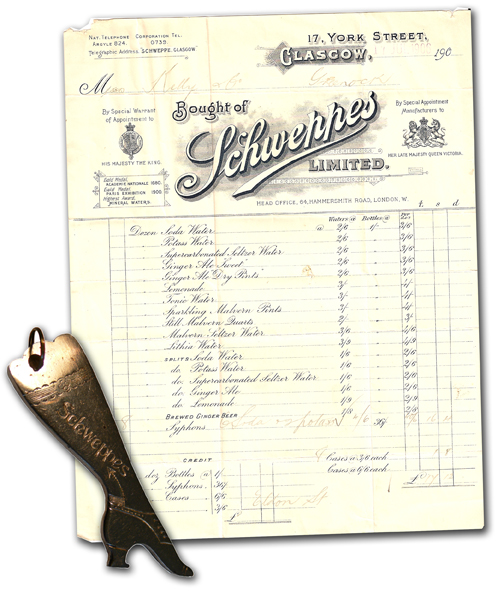 NAT. TELEPHONE CORPORATION TEL.
ARGYLE 824. 0739.
Telegraphic Address "SCHWEPPE, GLASGOW."
17, YORK STREET,
GLASGOW, 190
M
Bought of
Schweppes
LIMITED.
By Special Warrant
of Appointment to
HIS MAJESTY THE KING.
Gold Medal
ACADEMIE NATIONALE
Gold Medal
PARIS EXHIBITION 1900.
Highest Award,
MINERAL WATERS.
By Special Appointment
Manufacturers to
HER LATE MAJESTY QUEEN VICTORIA.
HEAD OFFICE, 64, HAMMERSMITH ROAD, LONDON, W.
£ s d
Waters @ Bottles @
Dozen Soda Water @ 2/6 1/- 3/6
Potass Water 2/6 3/6
Supercarbonated Seltzer Water 2/6 3/6
Ginger Ale "Sweet" 2/6 3/6
Ginger Ale "Dry Paris" 2/6 3/6
Lemonade 3/- 4/-
Tonic Water 3/- 4/-
Sparkling Malvern Pints 3/- 4/-
Still Malvern Quarts 2/- 3/-
Malvern Seltzer Water 3/6 4/6
Lithia Water 3/9 4/9
SPLITS Soda Water 1/6 2/6
do. Potass Water 1/6 2/6
do. Supercarbonated Seltzer Water 1/6 2/6
do. Ginger Ale 1/6 2/6
do. Lemonade 1/9 2/9
BREWED GINGER BEER 1/8 2/8
Syphons
CREDIT
Cases @ 3/6 each
Cases @ 6/6 each
doz Bottles @ 1/-
Syphons
Cases 6/6
3/6
£
£
Schweppes